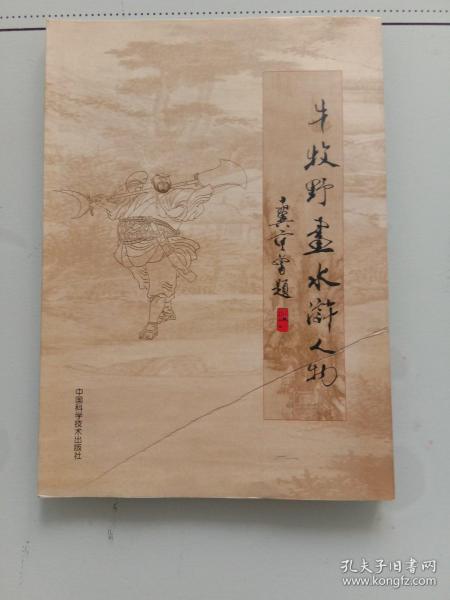 牛牧野画水浒人物
冀官学题
中国科学技术出版社
孔夫子旧书网
www.kongfz.com